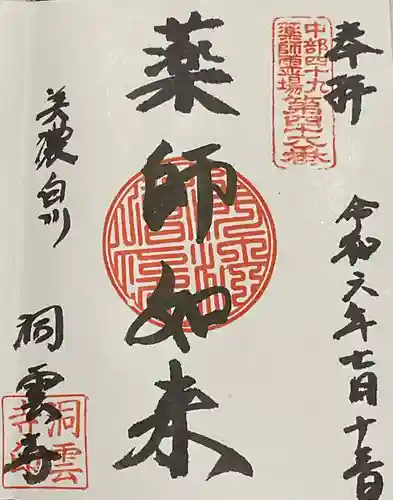 奉拝
中部四十九
薬師霊場第四十六番
令和六年七月十三日
薬師如来
美濃白川
洞雲寺
洞雲
寺印